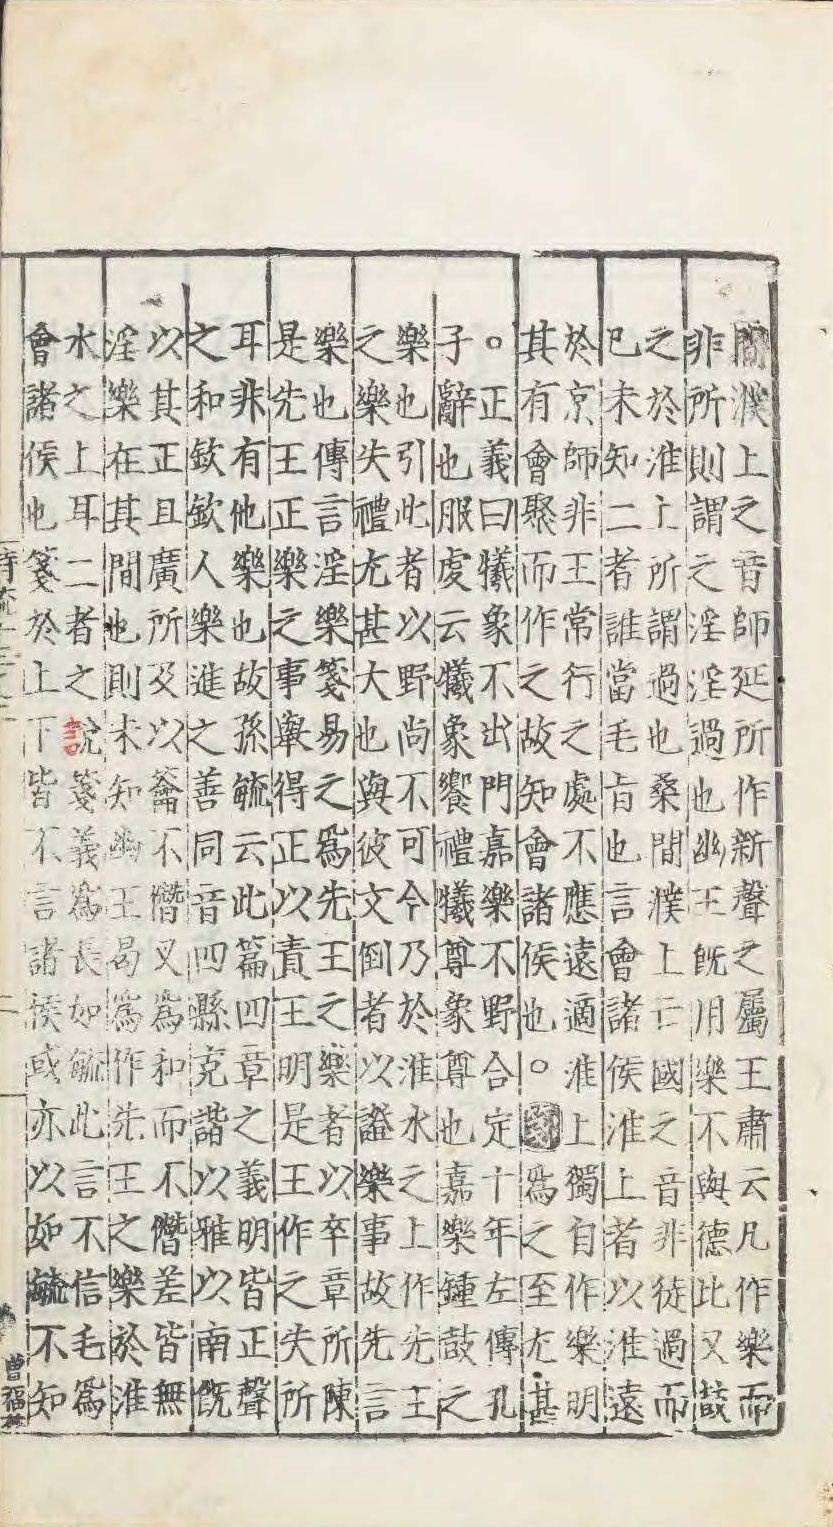 間濮上之音師延所作新聲之屬王肅云凡作樂而
非所則謂之淫淫過也幽王旣用樂不與德比又鼔
之於淮上所謂過也桑間濮上亡國之音非徒過而
巳未知二者誰當毛旨也言會諸侯淮上者以淮遠
於京師非王常行之處不應遠適淮上獨自作樂明
其有會聚而作之故知會諸侯也○爲之至尤甚
○正義曰犧象不出門嘉樂不野合定十年左傳孔
子辭也服虔云犧象饗禮犧尊象尊也嘉樂鍾鼓之
樂也引此者以野尚不可今乃於淮水之上作先王
之樂失禮尤甚大也與彼文倒者以證樂事故先言
樂也傳言淫樂箋易之爲先王之樂者以卒章所陳
是先王正樂之事舉得正以責王明是王作之失所
耳非有他樂也故孫毓云此篇四章之義明皆正聲
之和欽欽人樂進之善同音四縣克諧以雅以南旣
以其正且廣所及以籥不僭又爲和而不僭差皆無
淫樂在其間也則未知幽王曷爲作先王之樂於淮
水之上耳二者之說箋義爲長如毓此言不信毛爲
會諸侯也箋於上下皆不言諸侯或亦以如毓不知
二
曹福林